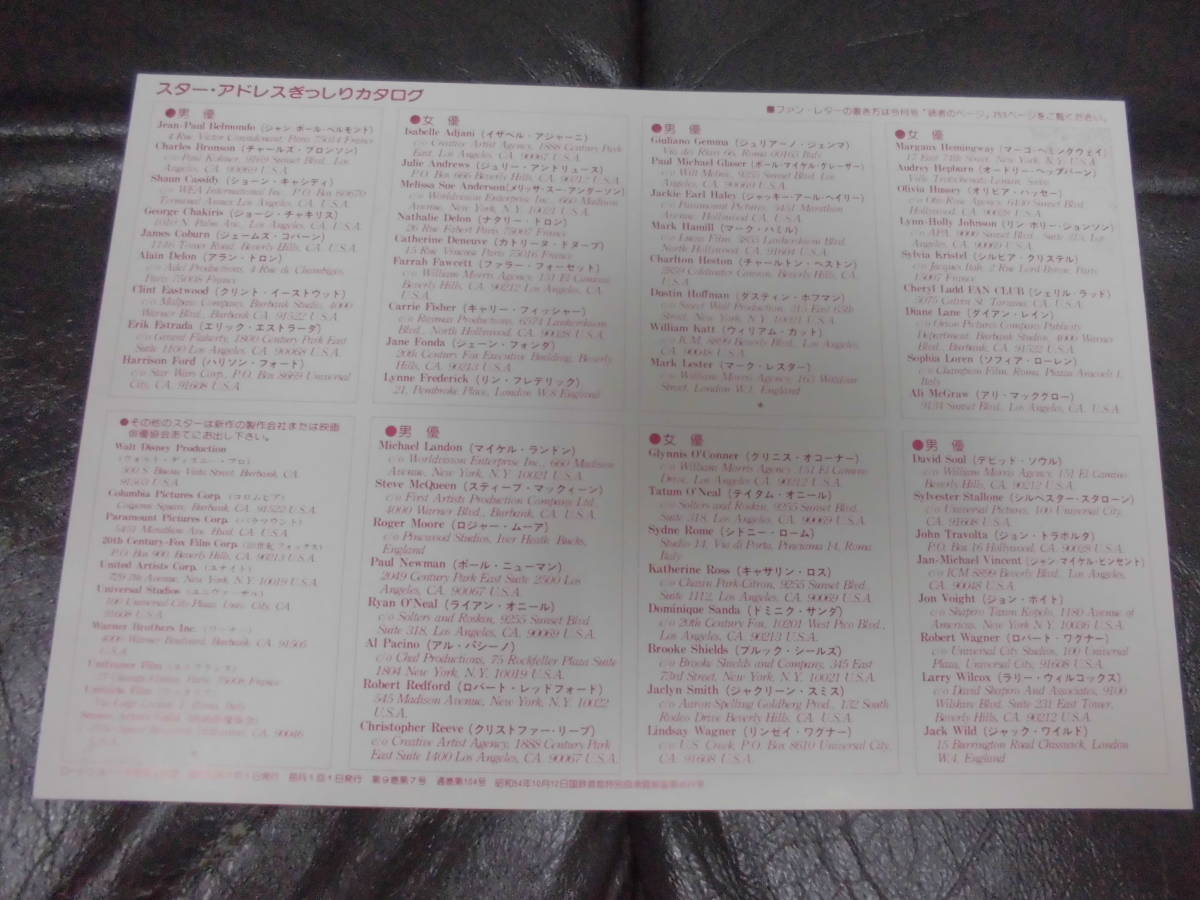 スター・アドレスぎっしりカタログ
■ファン・レターの書き方は今月号"読者のページ"，253ページをご覧ください。
●男優
Jean-Paul Belmondo (ジャン ポール・ベルモンド)
4 Rue Victor Considerant, Paris 75014 France
Charles Bronson (チャールズ・ブロンソン)
c/o Paul Kohner, 9169 Sunset Blvd., Los
Angeles, CA. 90069 U.S.A.
Shaun Cassidy (ショーン・キャシディ)
c/o WEA International Inc., P.O. Box
Terminal Annex Los Angeles, CA. U.S.A.
George Chakiris (ジョージ・チャキリス)
N. Palm Ave., Los Angeles, CA. U.S.A.
James Coburn (ジェームス・コバーン)
Tower Road, Beverly Hills, CA. U.S.A.
Alain Delon (アラン・ドロン)
c/o Adel Productions, 4 Rue de Chambiges,
Paris 75008 France
Clint Eastwood (クリント・イーストウッド)
c/o Malpaso Company, Burbank Studio, 4000
Warner Blvd., Burbank, CA. 91522 U.S.A.
Erik Estrada (エリック・エストラーダ)
c/o General Flaherty, 1800 Century Park East
Suite 1100 Los Angeles, CA. 90068 U.S.A.
Harrison Ford (ハリソン・フォード)
c/o Star Wars Corp., P.O. Box 8669 Universal
City, CA. 91608 U.S.A.
●女優
Isabelle Adjani (イザベル・アジャーニ)
c/o Creative Artist Agency, 1888 Century Park
East, Los Angeles, CA. 90067 U.S.A.
Julie Andrews (ジュリー・アンドリュース)
P.O. Box 666 Beverly Hills, CA. 90213 U.S.A.
Melissa Sue Anderson (メリッサ・スー・アンダーソン)
c/o Worldvision Enterprise Inc., 660 Madison
Avenue, New York, N.Y. 10021 U.S.A.
Nathalie Delon (ナタリー・ドロン)
26 Rue Fabert Paris 75007 France
Catherine Deneuve (カトリーヌ・ドヌーブ)
15 Rue Vineuse Paris 75016 France
Farrah Fawcett (ファラー・フォーセット)
c/o William Morris Agency, 151 El Camino,
Beverly Hills, CA. 90212 Los Angeles, CA.
U.S.A.
Carrie Fisher (キャリー・フィッシャー)
c/o Runmas Productions, 6574 Lankershim
Blvd., North Hollywood, CA. 90028 U.S.A.
Jane Fonda (ジェーン・フォンダ)
20th Century Fox Executive Building, Beverly
Hills, CA. 90213 U.S.A.
Lynne Frederick (リン・フレデリック)
21, Pembroke Place, London W.8 England
●男優
Giuliano Gemma (ジュリアーノ・ジェンマ)
Via dei Riari 66, Roma 00165 Italy
Paul Michael Glaser (ポール・マイケル・グレーザー)
c/o Will Melnic, 9255 Sunset Blvd., Los
Angeles, CA. 90069 U.S.A.
Jackie Earl Haley (ジャッキー・アール・ヘイリー)
c/o Paramount Pictures, 5451 Marathon
Avenue, Hollywood CA. U.S.A.
Mark Hamill (マーク・ハミル)
c/o Lucas Film, 3855 Lankershiem Blvd.
North Hollywood, CA. 91604 U.S.A.
Charlton Heston (チャールトン・ヘストン)
2859 Coldwater Canyon, Beverly Hills, CA.
U.S.A.
Dustin Hoffman (ダスティン・ホフマン)
c/o Sweet Wall Production, 315 East 65th
Street, New York, N.Y. 10021 U.S.A.
William Katt (ウィリアム・カット)
c/o ICM 8899 Beverly Blvd., Los Angeles, CA.
90048 U.S.A.
Mark Lester (マーク・レスター)
c/o Williams Morris Agency, 165 Waydour
Street, London W.1. England
●女優
Margaux Hemingway (マーゴ・ヘミングウェイ)
17 East 74th Street, New York, N.Y. U.S.A.
Audrey Hepburn (オードリー・ヘップバーン)
Villa Tranchepied, Leman, Suisse
Olivia Hussey (オリビア・ハッセー)
c/o Agency, 6430 Sunset Blvd.,
Hollywood, CA. 90028 U.S.A.
Lynn-Holly Johnson (リン ホリー・ジョンソン)
c/o APA, 9000 Sunset Blvd., Suite 315, Los
Angeles, CA. 90069 U.S.A.
Sylvia Kristel (シルビア・クリステル)
c/o Jacques Itah, 2 Rue Lord Byron, Paris
75007 France
Cheryl Ladd FAN CLUB (シェリル・ラッド)
5075 Calvin St. Tarzana, CA. U.S.A.
Diane Lane (ダイアン・レイン)
c/o Orion Pictures Company Publicity
Department, Burbank Studios, 4000 Warner
Blvd., Burbank, CA. 91522 U.S.A.
Sophia Loren (ソフィア・ローレン)
c/o Champion Film, Roma, Piazza Aracoeli 1,
Italy
Ali McGraw (アリ・マックグロー)
9134 Sunset Blvd., Los Angeles, CA. U.S.A.
●その他のスターは新作の製作会社または映画
俳優協会あてにお出し下さい。
Walt Disney Production
(ウォルト・ディズニー・プロ)
500 S. Buena Vista Street, Burbank, CA.
91503 U.S.A.
Columbia Pictures Corp. (コロムビア)
Colgems Square, Burbank, CA. 91522 U.S.A.
Paramount Pictures Corp. (パラマウント)
5451 Marathon Ave. Hwd. CA. U.S.A.
20th Century-Fox Film Corp. (20世紀フォックス)
P.O. Box 900, Beverly Hills, CA. 90213 U.S.A.
United Artists Corp. (ユナイト)
729 7th Avenue, New York, N.Y. 10019 U.S.A.
Universal Studios (ユニヴァーサル)
100 Universal City Plaza, Univ. City, CA.
91608 U.S.A.
Warner Brothers Inc. (ワーナー)
4000 Warner Boulevard, Burbank, CA. 91505
U.S.A.
●男優
Michael Landon (マイケル・ランドン)
c/o Worldvision Enterprise Inc., 660 Madison
Avenue, New York, N.Y. 10021 U.S.A.
Steve McQueen (スティーブ・マックィーン)
c/o First Artists Production Company Ltd.,
4000 Warner Blvd., Burbank, CA. U.S.A.
Roger Moore (ロジャー・ムーア)
c/o Pinewood Studios, Iver Heath, Bucks,
England
Paul Newman (ポール・ニューマン)
2049 Century Park East Suite 2500 Los
Angeles, CA. 90067 U.S.A.
Ryan O'Neal (ライアン・オニール)
c/o Solters and Roskin, 9255 Sunset Blvd.
Suite 318, Los Angeles, CA. 90069 U.S.A.
Al Pacino (アル・パシーノ)
c/o Chal Productions, 75 Rockfeller Plaza Suite
1804 New York, N.Y. 10019 U.S.A.
Robert Redford (ロバート・レッドフォード)
545 Madison Avenue, New York, N.Y. 10022
U.S.A.
Christopher Reeve (クリストファー・リーブ)
c/o Creative Artist Agency, 1888 Century Park
East Suite 1400 Los Angeles, CA. 90067 U.S.A.
●女優
Glynnis O'Conner (グリニス・オコーナー)
c/o William Morris Agency, 151 El Camino
Drive, Los Angeles, CA. 90212 U.S.A.
Tatum O'Neal (テイタム・オニール)
c/o Solters and Roskin, 9255 Sunset Blvd.,
Suite 318, Los Angeles, CA. 90069 U.S.A.
Sydne Rome (シドニー・ローム)
Studio 14, Via di Porta, Pinciama 14, Roma
Italy
Katherine Ross (キャサリン・ロス)
c/o Chasin Park-Citron, 9255 Sunset Blvd.,
Suite 1112, Los Angeles, CA. 90069 U.S.A.
Dominique Sanda (ドミニク・サンダ)
c/o 20th Century Fox, 10201 West Pico Blvd.,
Los Angeles, CA. 90213 U.S.A.
Brooke Shields (ブルック・シールズ)
c/o Brooke Shields and Company, 345 East
73rd Street, New York, N.Y. 10021 U.S.A.
Jaclyn Smith (ジャクリーン・スミス)
c/o Aaron Spelling Goldberg Prod., 132 South
Rodeo Drive Beverly Hills, CA. U.S.A.
Lindsay Wagner (リンゼイ・ワグナー)
c/o U.S. Creek, P.O. Box 8610 Universal City,
CA. 91608 U.S.A.
●男優
David Soul (デビッド・ソウル)
c/o William Morris Agency, 151 El Camino
Beverly Hills, CA. 90212 U.S.A.
Sylvester Stallone (シルベスター・スタローン)
c/o Universal Pictures, 100 Universal City,
CA. 91608 U.S.A.
John Travolta (ジョン・トラボルタ)
P.O. Box 16 Hollywood, CA. 90028 U.S.A.
Jan-Michael Vincent (ジャン・マイケル・ビンセント)
c/o ICM 8899 Beverly Blvd., Los Angeles,
CA. 90048 U.S.A.
Jon Voight (ジョン・ボイト)
c/o Shapiro Taxon Kopelo, 1180 Avenue of
Americas, New York, N.Y. 10036 U.S.A.
Robert Wagner (ロバート・ワグナー)
c/o Universal City Studios, 100 Universal
Plaza, Universal City, 91608 U.S.A.
Larry Wilcox (ラリー・ウィルコックス)
c/o David Shapiro And Associates, 9100
Wilshire Blvd. Suite 231 East Tower,
Beverly Hills, CA. 90212 U.S.A.
Jack Wild (ジャック・ワイルド)
15 Barrington Road Chassnack, London
W.4. England
1日発行 毎月1回1日発行 第9巻第7号 通巻第104号 昭和54年10月12日国鉄首都特別扱承認雑誌第